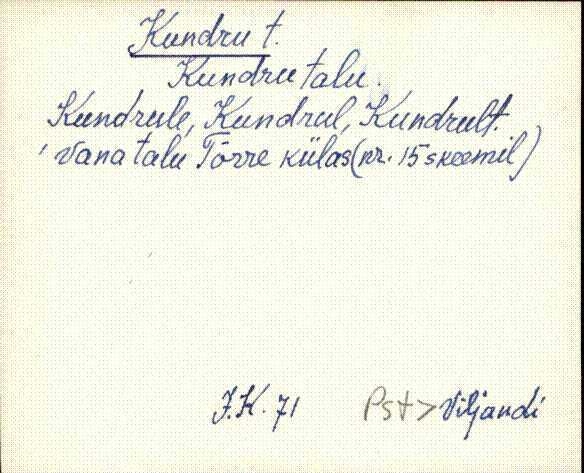 Kundru t.
Kundru talu.
Kundrule, Kundrul, Kundrult.
Vana talu Tõrre külas (nr. 15 skeemil)
J.K. 71 Pst > Viljandi